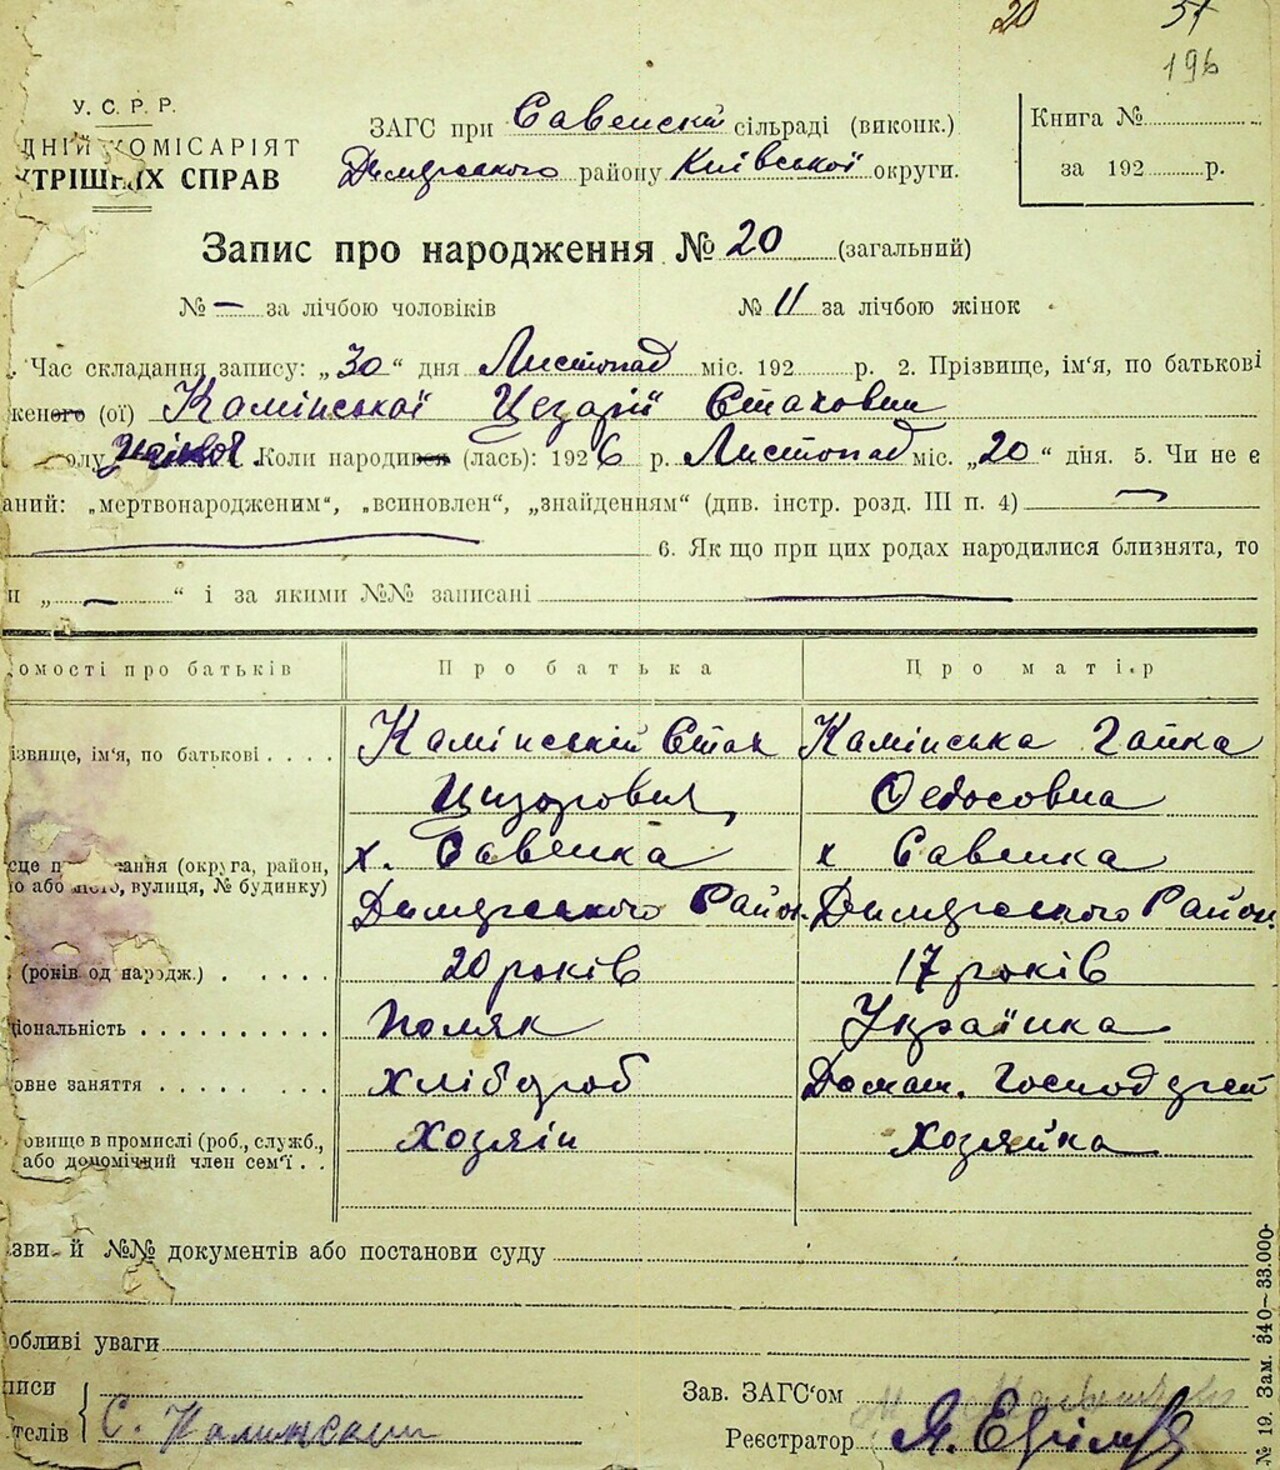 20 51
196
У. С. Р. Р.
ДНІЙ КОМІСАРІЯТ
УТРІШНІХ СПРАВ
ЗАГС при Савенскій сільраді (виконк.)
Димерського району Київської округи.
Книга №
за 192 р.
Запис про народження № 20 (загальний)
№ — за лічбою чоловіків № 11 за лічбою жінок
. Час складання запису: „30“ дня Листопад міс. 192 р. 2. Прізвище, ім'я, по батькові
женого (ої) Камінської Цезарії Стаховни
олу Коли народився (лась): 1926 р. Листопад міс. „20“ дня. 5. Чи не є
аний: „мертвонародженим“, „всиновлен“, „знайденням“ (див. інстр. розд. III п. 4) —
6. Як що при цих родах народилися близнята, то
и „ — “ і за якими №№ записані —
омості про батьків Про батька Про матір
ізвище, ім'я, по батькові . . . . Камінський Стах Камінська Ганка
Цизорович Федосовна
сце п ання (округа, район, х. Савенка х Савенка
о або місто, вулиця, № будинку) Димерського Район. Димерського Район.
. (років од народж.) . . . . . 20 років 17 років
ціональність . . . . . . . . . . Поляк Українка
овне заняття . . . . . . . . Хлібороб Домаш. Господарст
овище в промислі (роб., служб., Хозяін Хозяйка
або допомічний член сем'ї . .
зви й №№ документів або постанови суду
обливі уваги
писи Зав. ЗАГС'ом
телів С. Реєстратор Я.
№ 19. Зам. 340—33.000